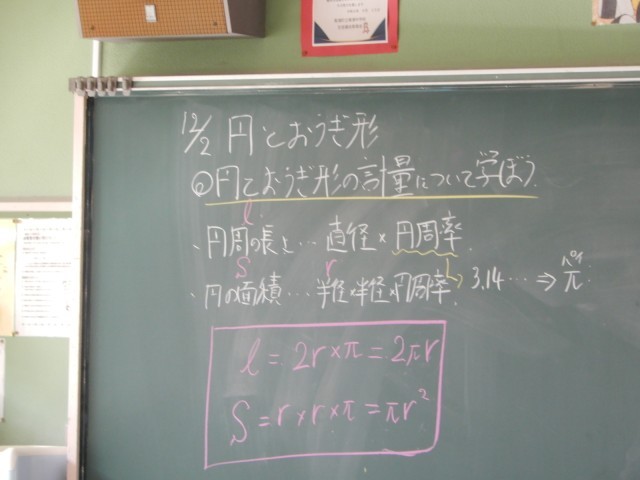 12/2 円とおうぎ形
◎円とおうぎ形の計量について学ぼう.
l
・円周の長さ…直径×円周率.
S r
・円の面積…半径×半径×円周率. → 3.14… ⇒ π パイ
l = 2r×π = 2πr
S = r×r×π = πr²